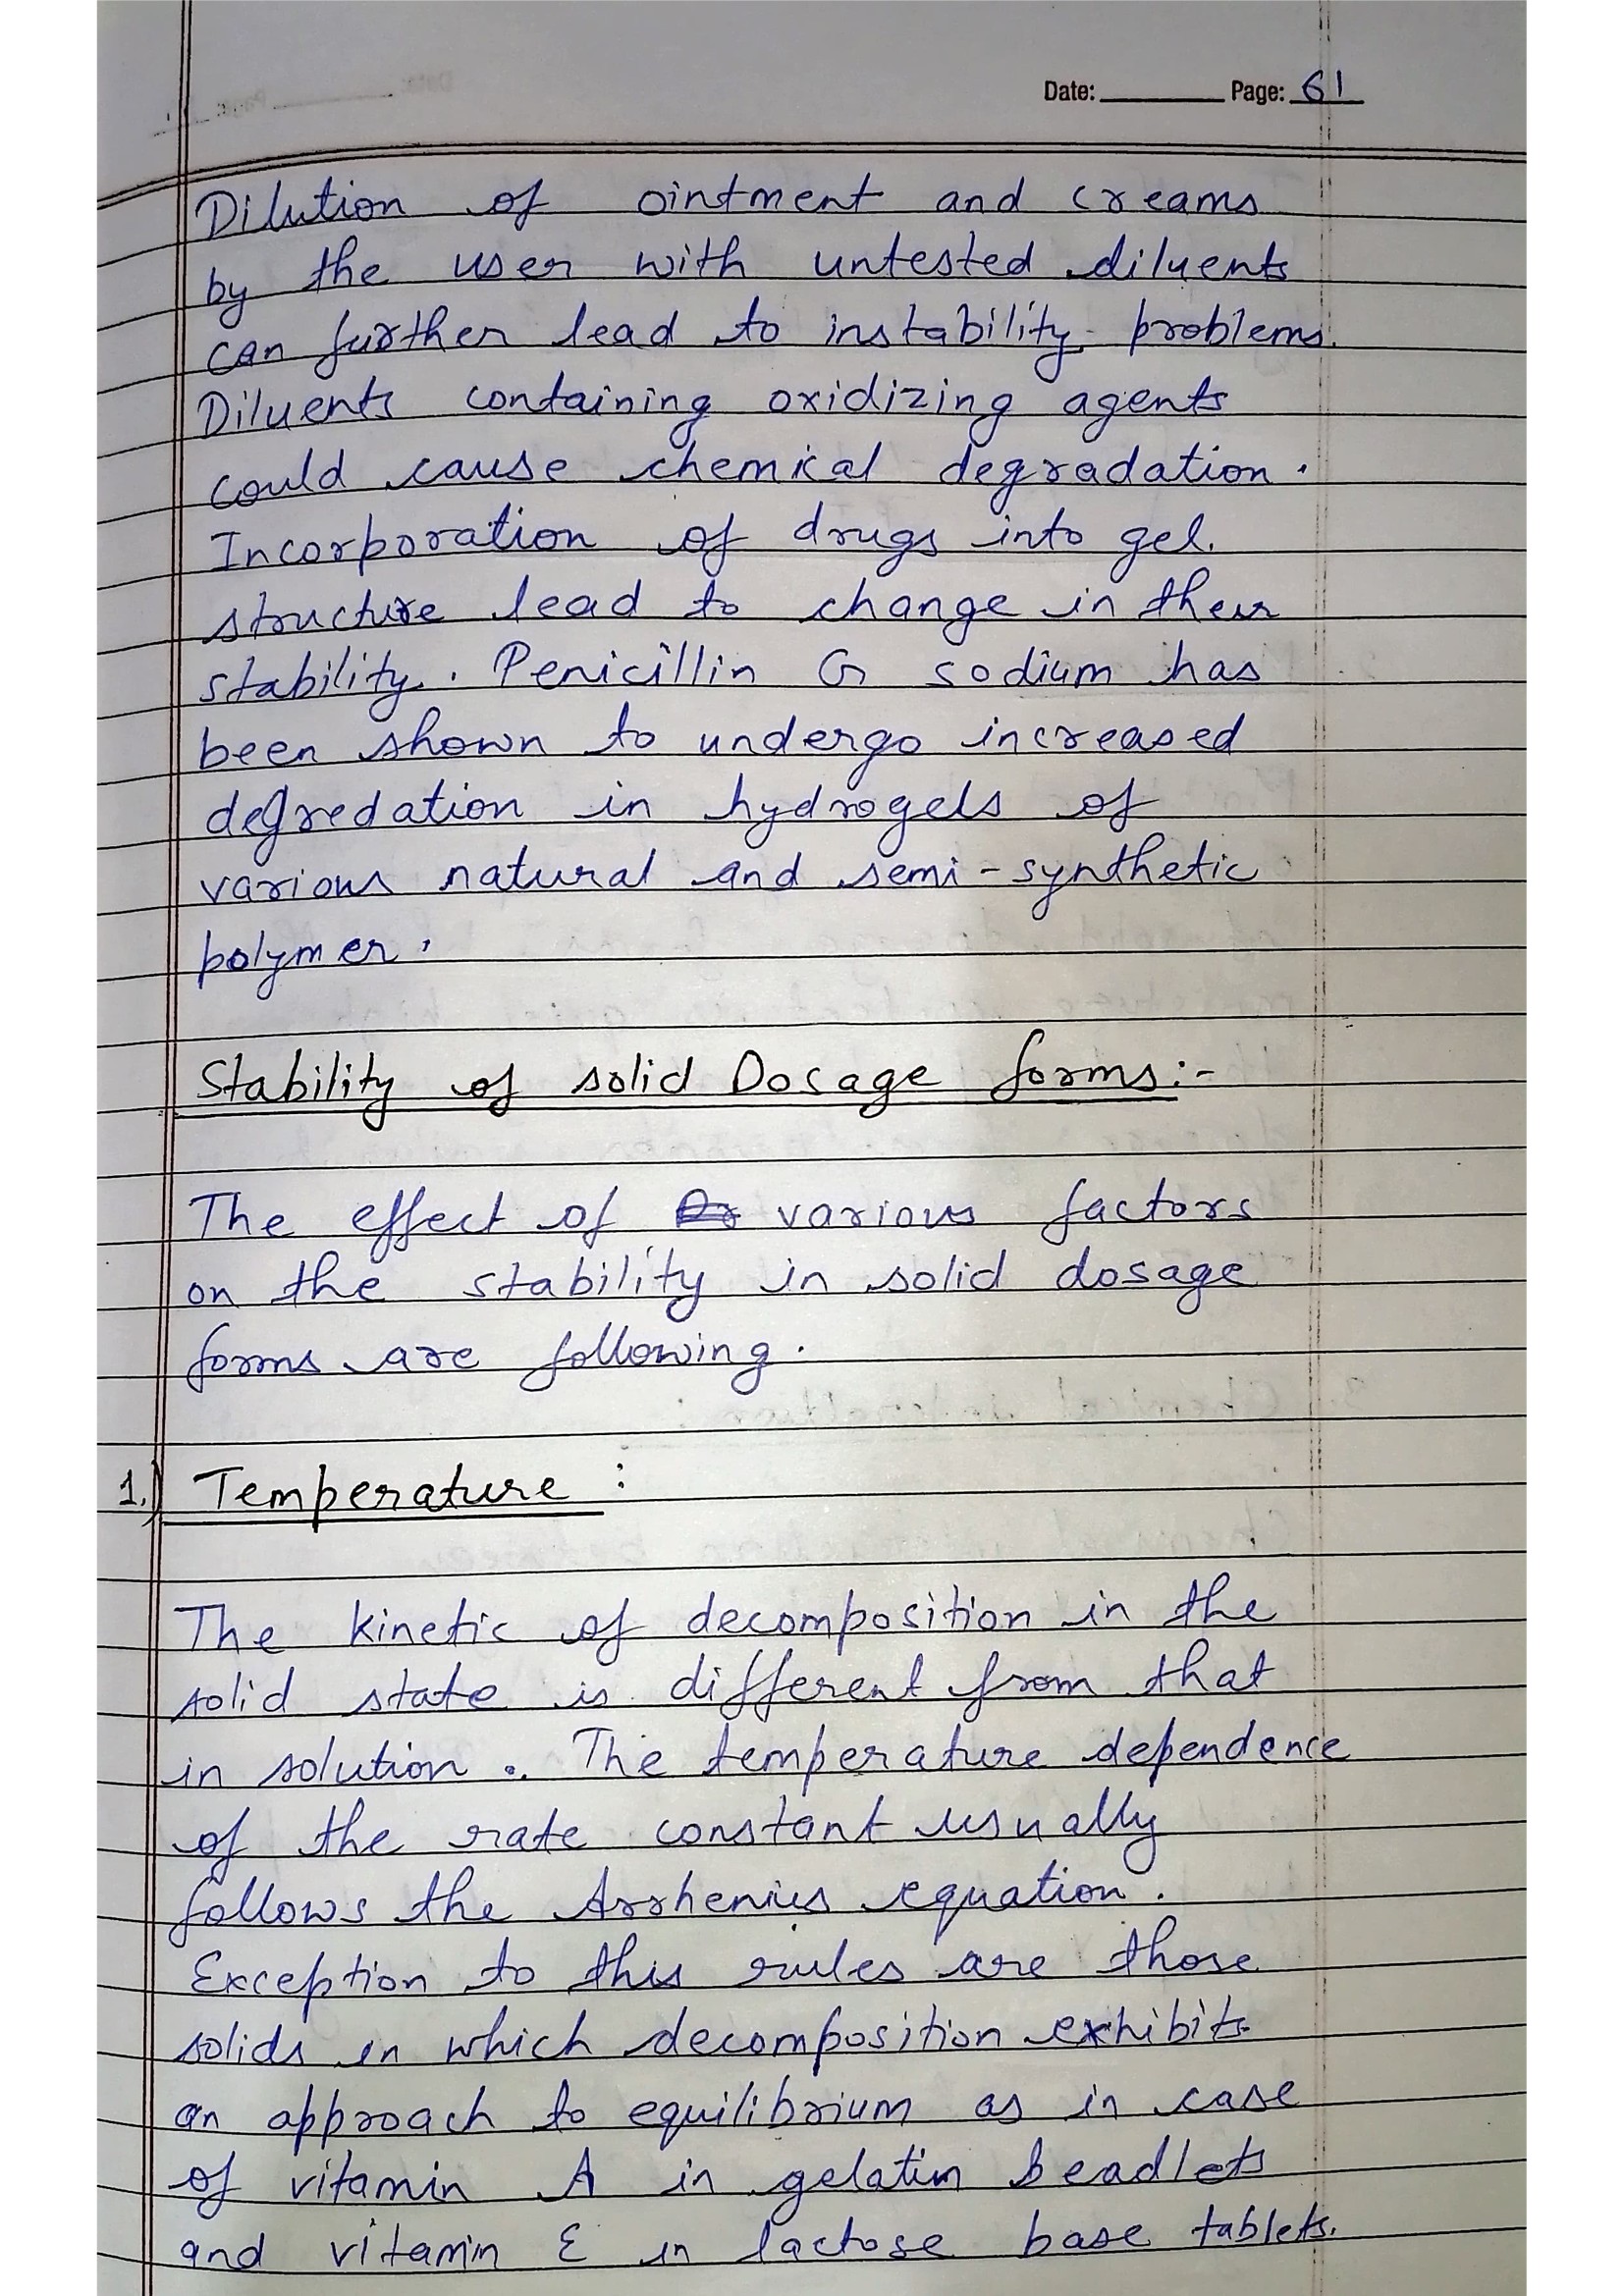 Date: ________ Page: 61
Dilution of ointment and creams
by the user with untested diluents
can further lead to instability problems.
Diluents containing oxidizing agents
could cause chemical degradation.
Incorporation of drugs into gel.
structure lead to change in their
stability. Penicillin G sodium has
been shown to undergo increased
degredation in hydrogels of
various natural and semi-synthetic
polymer.
Stability of solid Dosage forms:-
The effect of various factors
on the stability in solid dosage
forms are following.
1.) Temperature :
The kinetic of decomposition in the
solid state is different from that
in solution. The temperature dependence
of the rate constant usually
follows the Arrhenius equation.
Exception to this rules are those
solids in which decomposition exhibits
an approach to equilibrium as in case
of vitamin A in gelatin beadlets
and vitamin E in lactose base tablets.